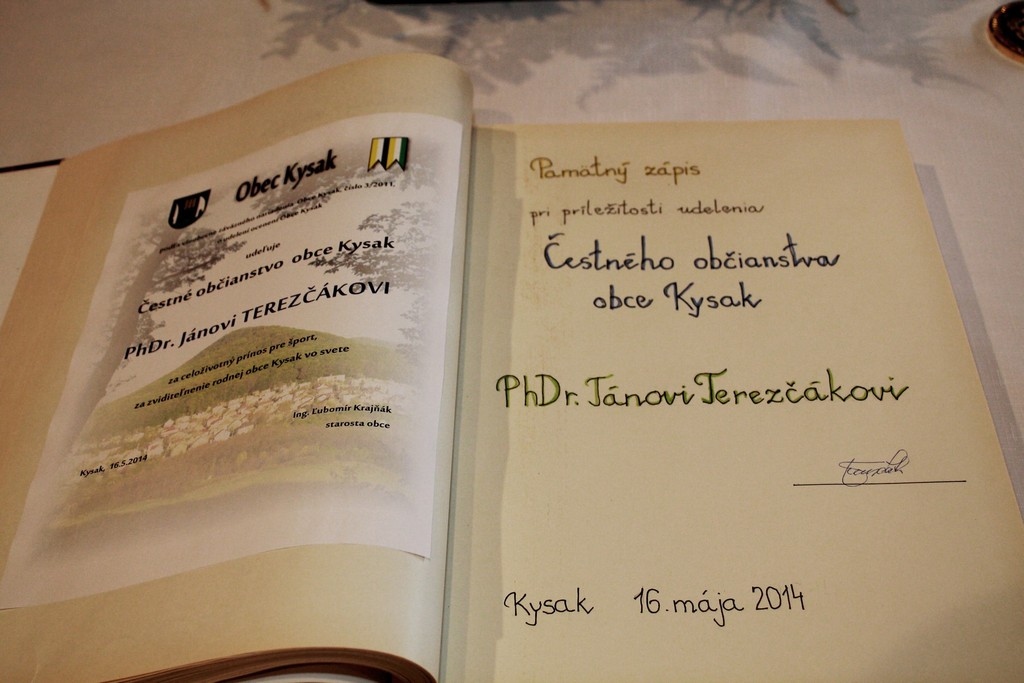 Obec Kysak
podľa všeobecne záväzného nariadenia Obce Kysak, číslo 3/2011,
o udelení ocenení Obce Kysak
udeľuje
Čestné občianstvo obce Kysak
PhDr. Jánovi TEREZČÁKOVI
za celoživotný prínos pre šport,
za zviditeľnenie rodnej obce Kysak vo svete
Ing. Ľubomír Krajňák
starosta obce
Kysak, 16.5.2014
Pamätný zápis
pri príležitosti udelenia
Čestného občianstva
obce Kysak
PhDr. Jánovi Terezčákovi
Kysak 16. mája 2014